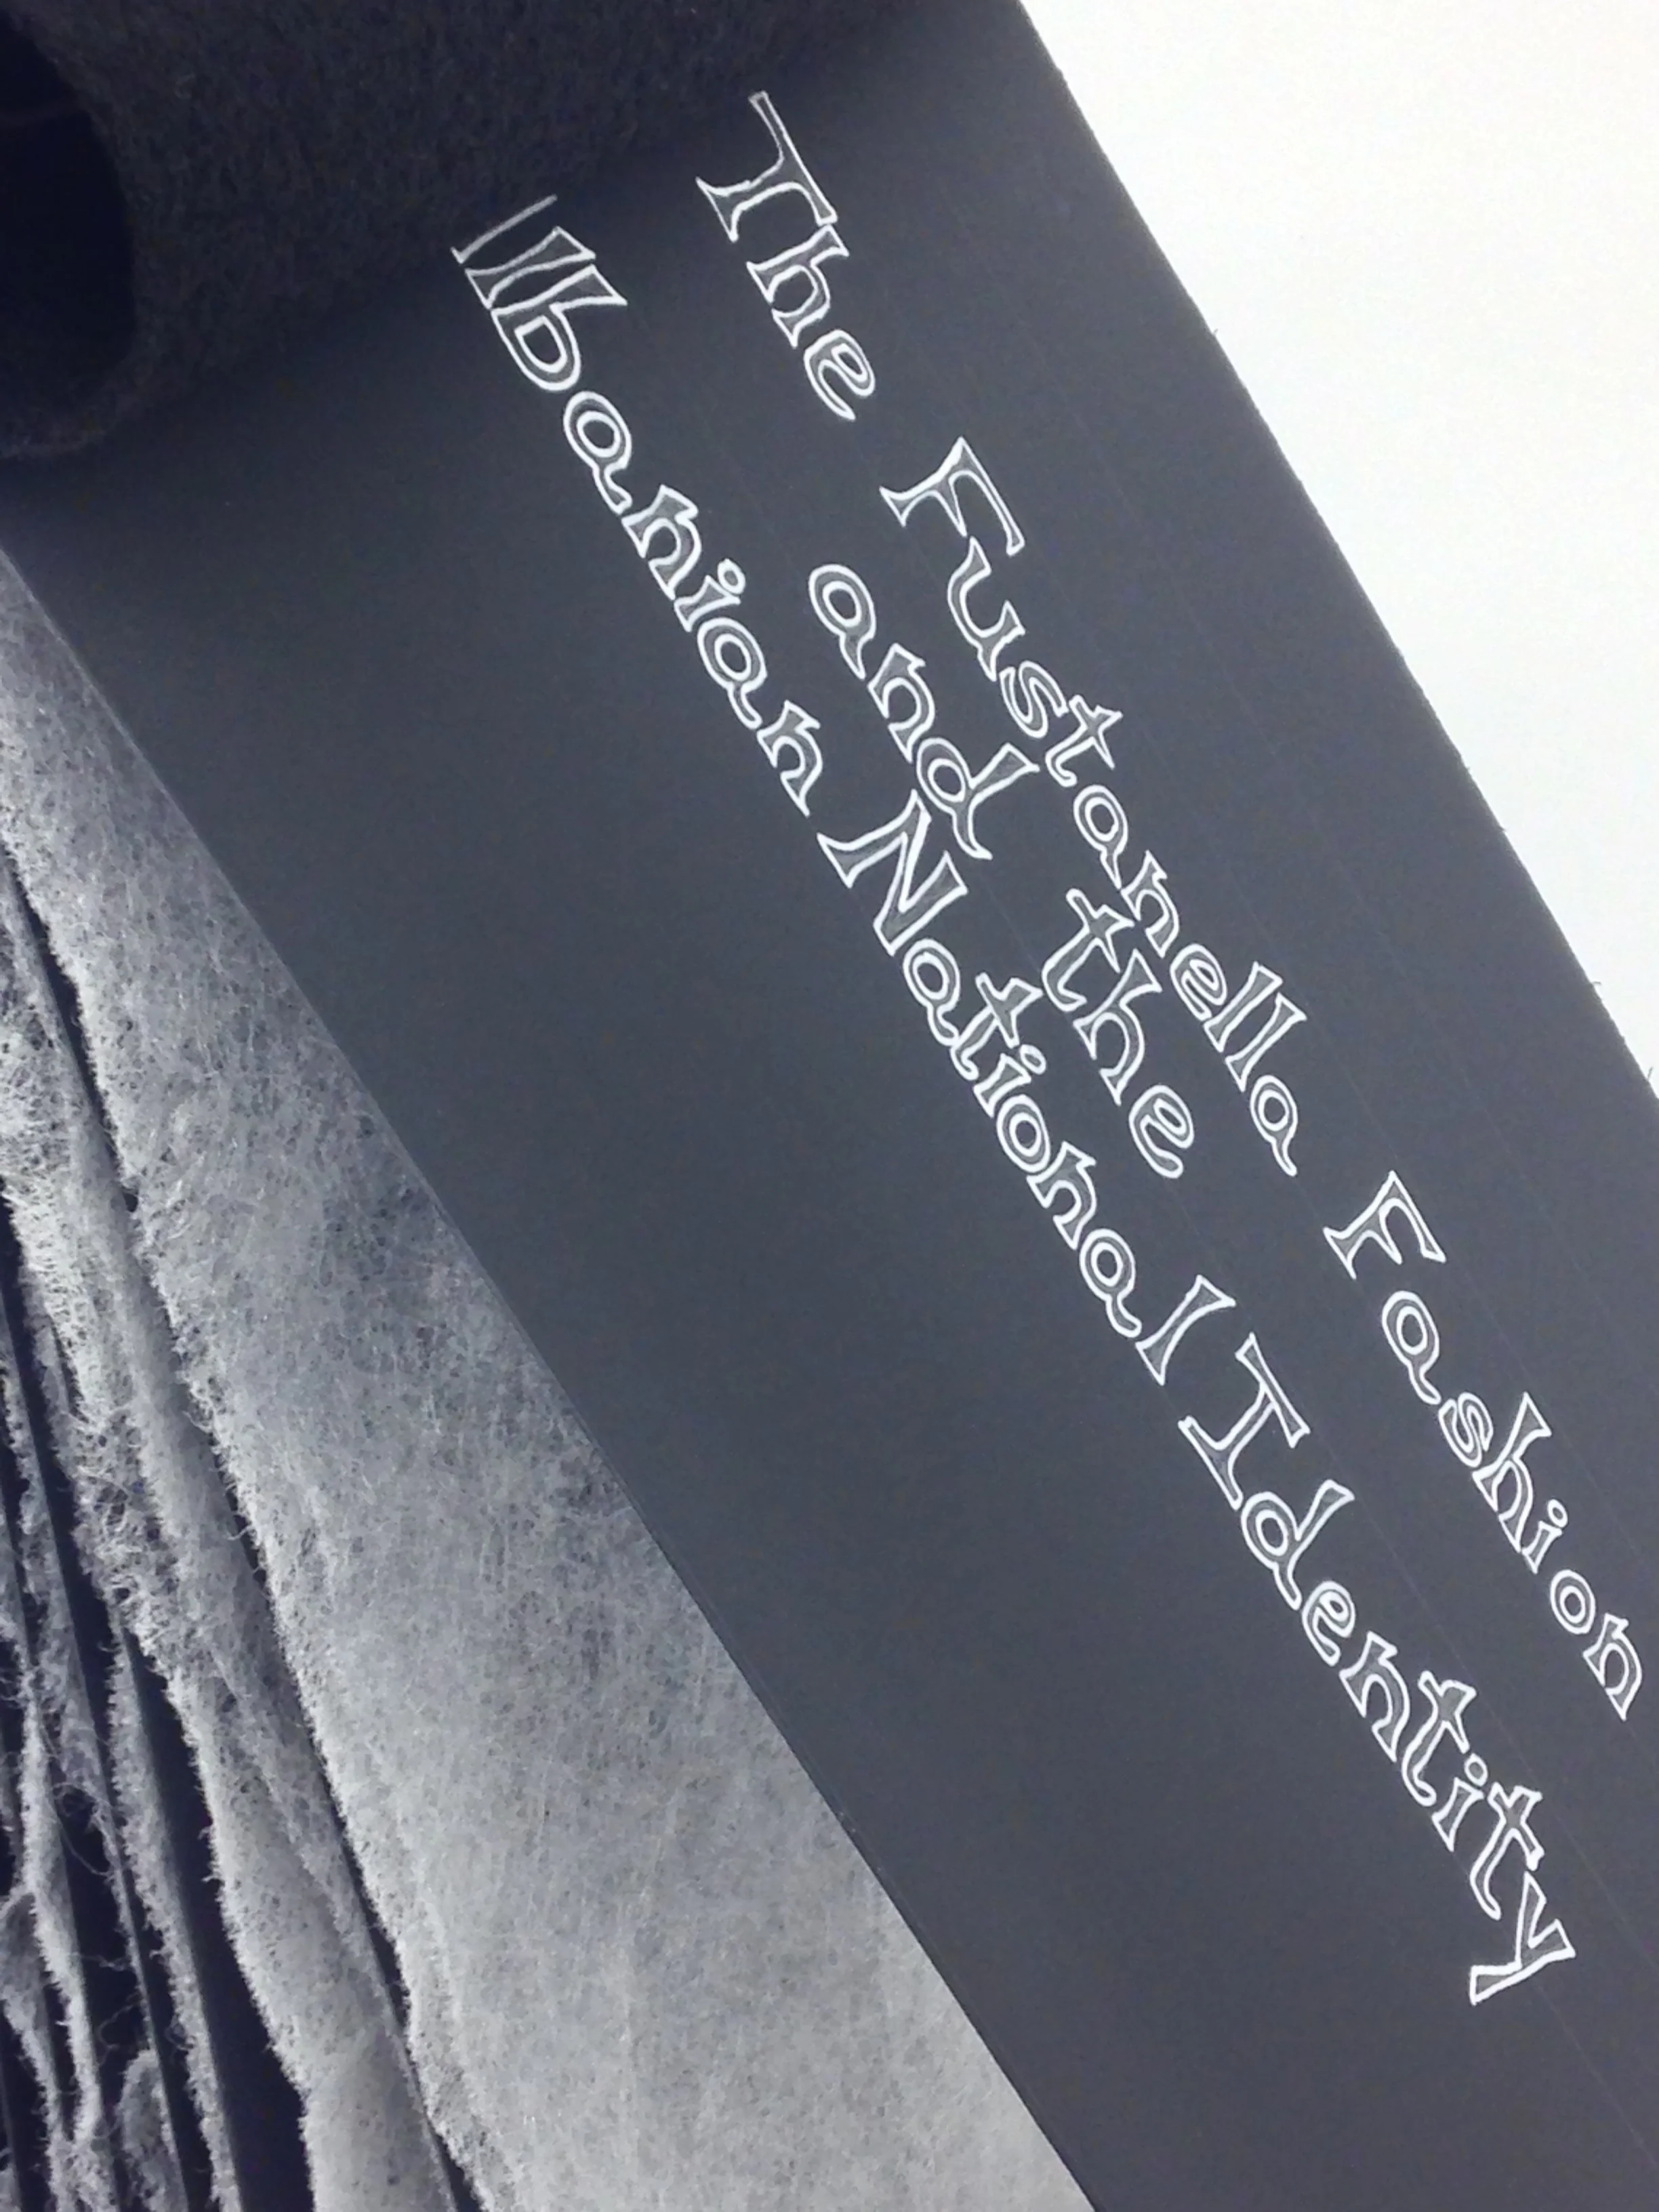 The Fustanella Fashion
and the
Albanian National Identity